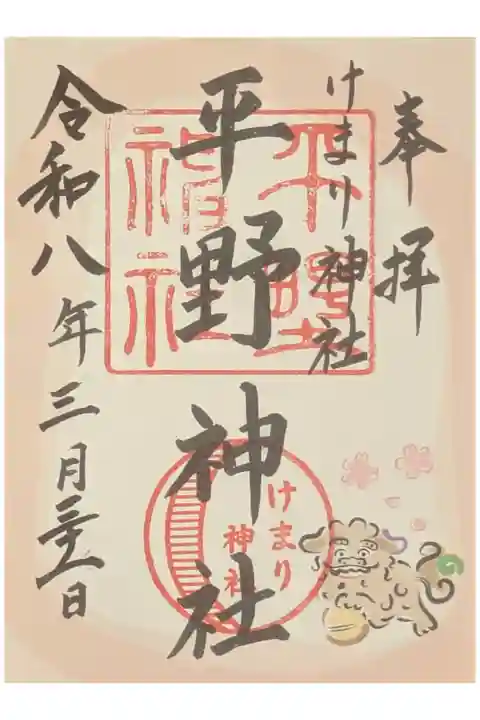 奉拝
けまり神社
平野神社
平野神社
けまり
神社
令和八年三月二十一日